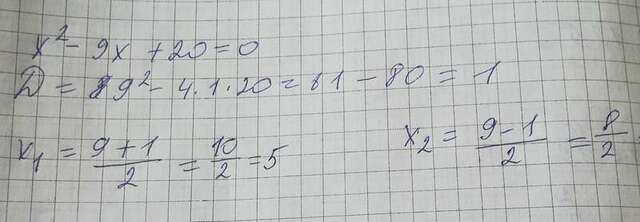 x² - 9x + 20 = 0
D = 9² - 4·1·20 = 81 - 80 = 1
x₁ = (9 + 1)/2 = 10/2 = 5
x₂ = (9 - 1)/2 = 8/2